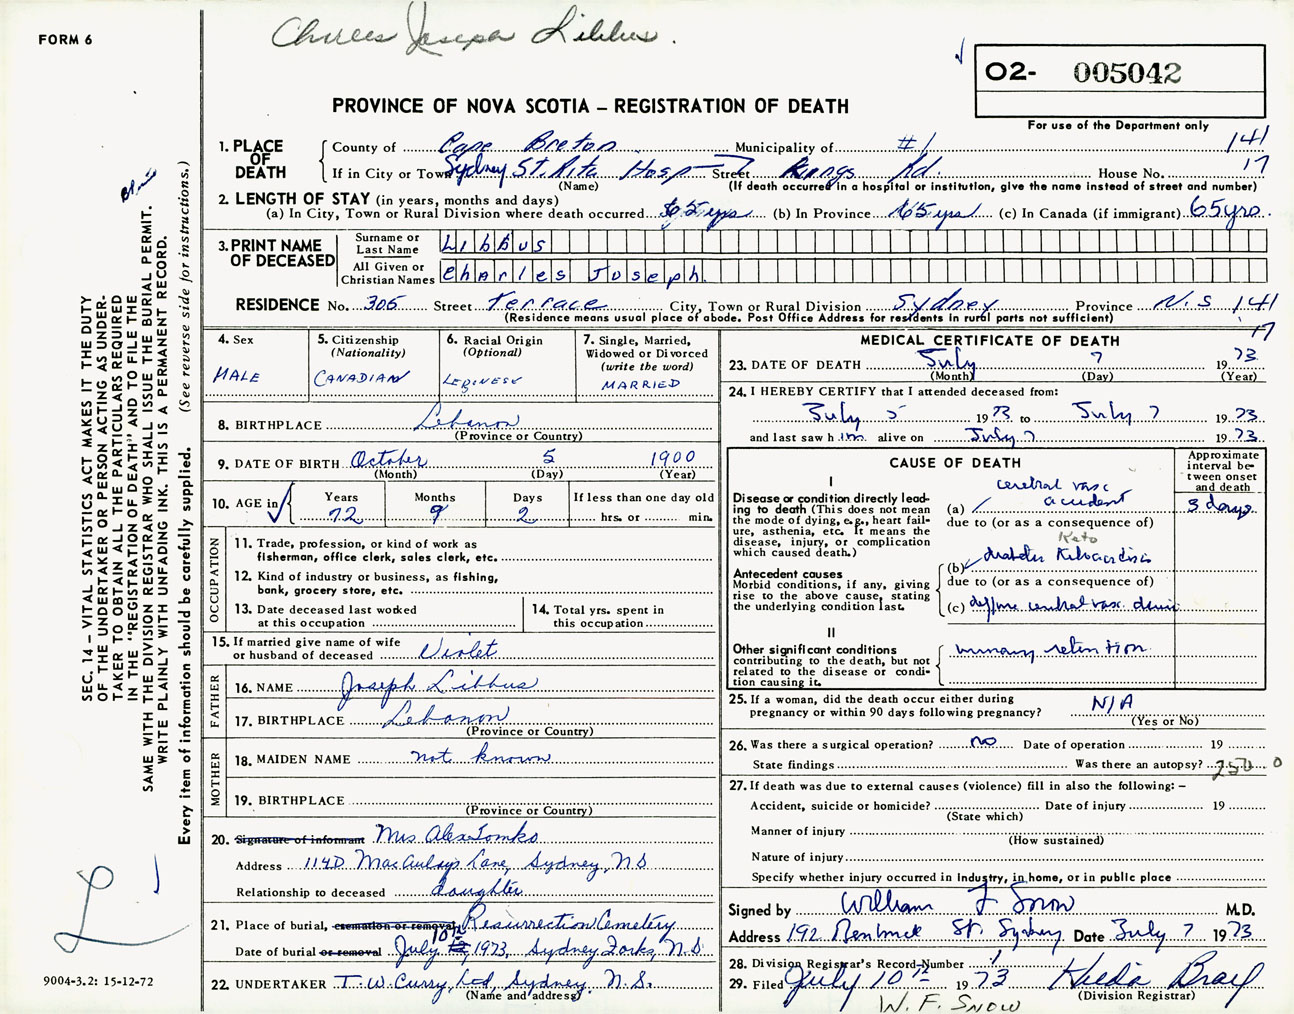 Charles Joseph Libbus.
FORM 6
O2- 005042
PROVINCE OF NOVA SCOTIA – REGISTRATION OF DEATH
For use of the Department only
1. PLACE OF DEATH
County of Cape Breton Municipality of #1 141
If in City or Town Sydney St. Rita Hosp Street Kings Rd. House No. 17
(Name) (If death occurred in a hospital or institution, give the name instead of street and number)
2. LENGTH OF STAY (in years, months and days)
(a) In City, Town or Rural Division where death occurred 65 yrs (b) In Province 65 yrs (c) In Canada (if immigrant) 65 yrs.
3. PRINT NAME OF DECEASED
Surname or Last Name Libbus
All Given or Christian Names Charles Joseph
RESIDENCE No. 306 Street Terrace City, Town or Rural Division Sydney Province N.S 141
(Residence means usual place of abode. Post Office Address for residents in rural parts not sufficient) 17
4. Sex
MALE
5. Citizenship (Nationality)
CANADIAN
6. Racial Origin (Optional)
LEBINESE
7. Single, Married, Widowed or Divorced (write the word)
MARRIED
8. BIRTHPLACE Lebanon
(Province or Country)
9. DATE OF BIRTH October 5 1900
(Month) (Day) (Year)
10. AGE in
Years Months Days If less than one day old
72 9 2 hrs. or min.
OCCUPATION
11. Trade, profession, or kind of work as fisherman, office clerk, sales clerk, etc.
12. Kind of industry or business, as fishing, bank, grocery store, etc.
13. Date deceased last worked at this occupation
14. Total yrs. spent in this occupation
15. If married give name of wife or husband of deceased Violet
FATHER
16. NAME Joseph Libbus
17. BIRTHPLACE Lebanon
(Province or Country)
MOTHER
18. MAIDEN NAME not known
19. BIRTHPLACE
(Province or Country)
20. Signature of informant Mrs Alex Tomko
Address 114D MacAulay's Lane, Sydney, NS
Relationship to deceased daughter
21. Place of burial, cremation or removal Resurrection Cemetery
Date of burial or removal July 10th 1973, Sydney Forks, N.S
22. UNDERTAKER T. W. Curry, Ltd, Sydney, N.S.
(Name and address)
MEDICAL CERTIFICATE OF DEATH
23. DATE OF DEATH July 7 1973
(Month) (Day) (Year)
24. I HEREBY CERTIFY that I attended deceased from:
July 5 1973 to July 7 1973
and last saw him alive on July 7 1973
CAUSE OF DEATH
Approximate interval between onset and death
I
Disease or condition directly leading to death (This does not mean the mode of dying, e.g., heart failure, asthenia, etc. It means the disease, injury, or complication which caused death.)
(a) cerebral vasc accident 3 days
due to (or as a consequence of)
Keto
(b) diabetes
due to (or as a consequence of)
Antecedent causes
Morbid conditions, if any, giving rise to the above cause, stating the underlying condition last.
(c) diffuse cerebral vasc
II
Other significant conditions contributing to the death, but not related to the disease or condition causing it.
urinary retention
25. If a woman, did the death occur either during pregnancy or within 90 days following pregnancy? N/A
(Yes or No)
26. Was there a surgical operation? no Date of operation 19
State findings Was there an autopsy? 250 0
27. If death was due to external causes (violence) fill in also the following: –
Accident, suicide or homicide? Date of injury 19
(State which)
Manner of injury
(How sustained)
Nature of injury
Specify whether injury occurred in Industry, in home, or in public place
Signed by William F Snow M.D.
Address 192 Bentinck St. Sydney Date July 7 1973
28. Division Registrar's Record Number
29. Filed July 10th 1973 Hilda Bray
(Division Registrar)
W. F. SNOW
SEC. 14 – VITAL STATISTICS ACT MAKES IT THE DUTY
OF THE UNDERTAKER OR PERSON ACTING AS UNDER-
TAKER TO OBTAIN ALL THE PARTICULARS REQUIRED
IN THE "REGISTRATION OF DEATH" AND TO FILE THE
SAME WITH THE DIVISION REGISTRAR WHO SHALL ISSUE THE BURIAL PERMIT.
WRITE PLAINLY WITH UNFADING INK. THIS IS A PERMANENT RECORD.
Every item of information should be carefully supplied. (See reverse side for instructions.)
L
9004-3.2: 15-12-72